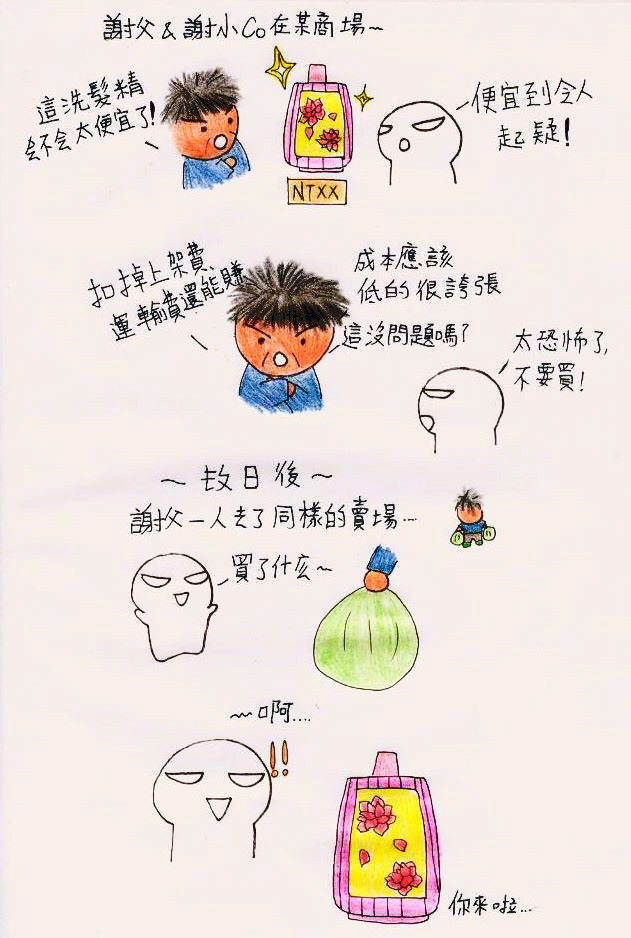 謝父 & 謝小Co在某商場~
這洗髮精
会不会太便宜了!
NTXX
便宜到令人
起疑!
扣掉上架費、
運輸費還能賺
成本應該
低的很誇張
這沒問題嗎?
太恐怖了,
不要買!
~ 日後~
謝父一人去了同樣的賣場…
買了什么~
~啊....
!!
你來啦...